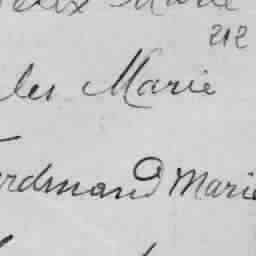 Marie
212
les Marie
erdinand Marie